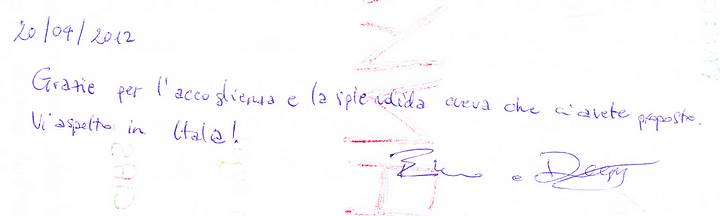 20/04/2012
Grazie per l'accoglienza e la splendida cueva che ci avete proposto.
Vi aspetto in Italia!
e